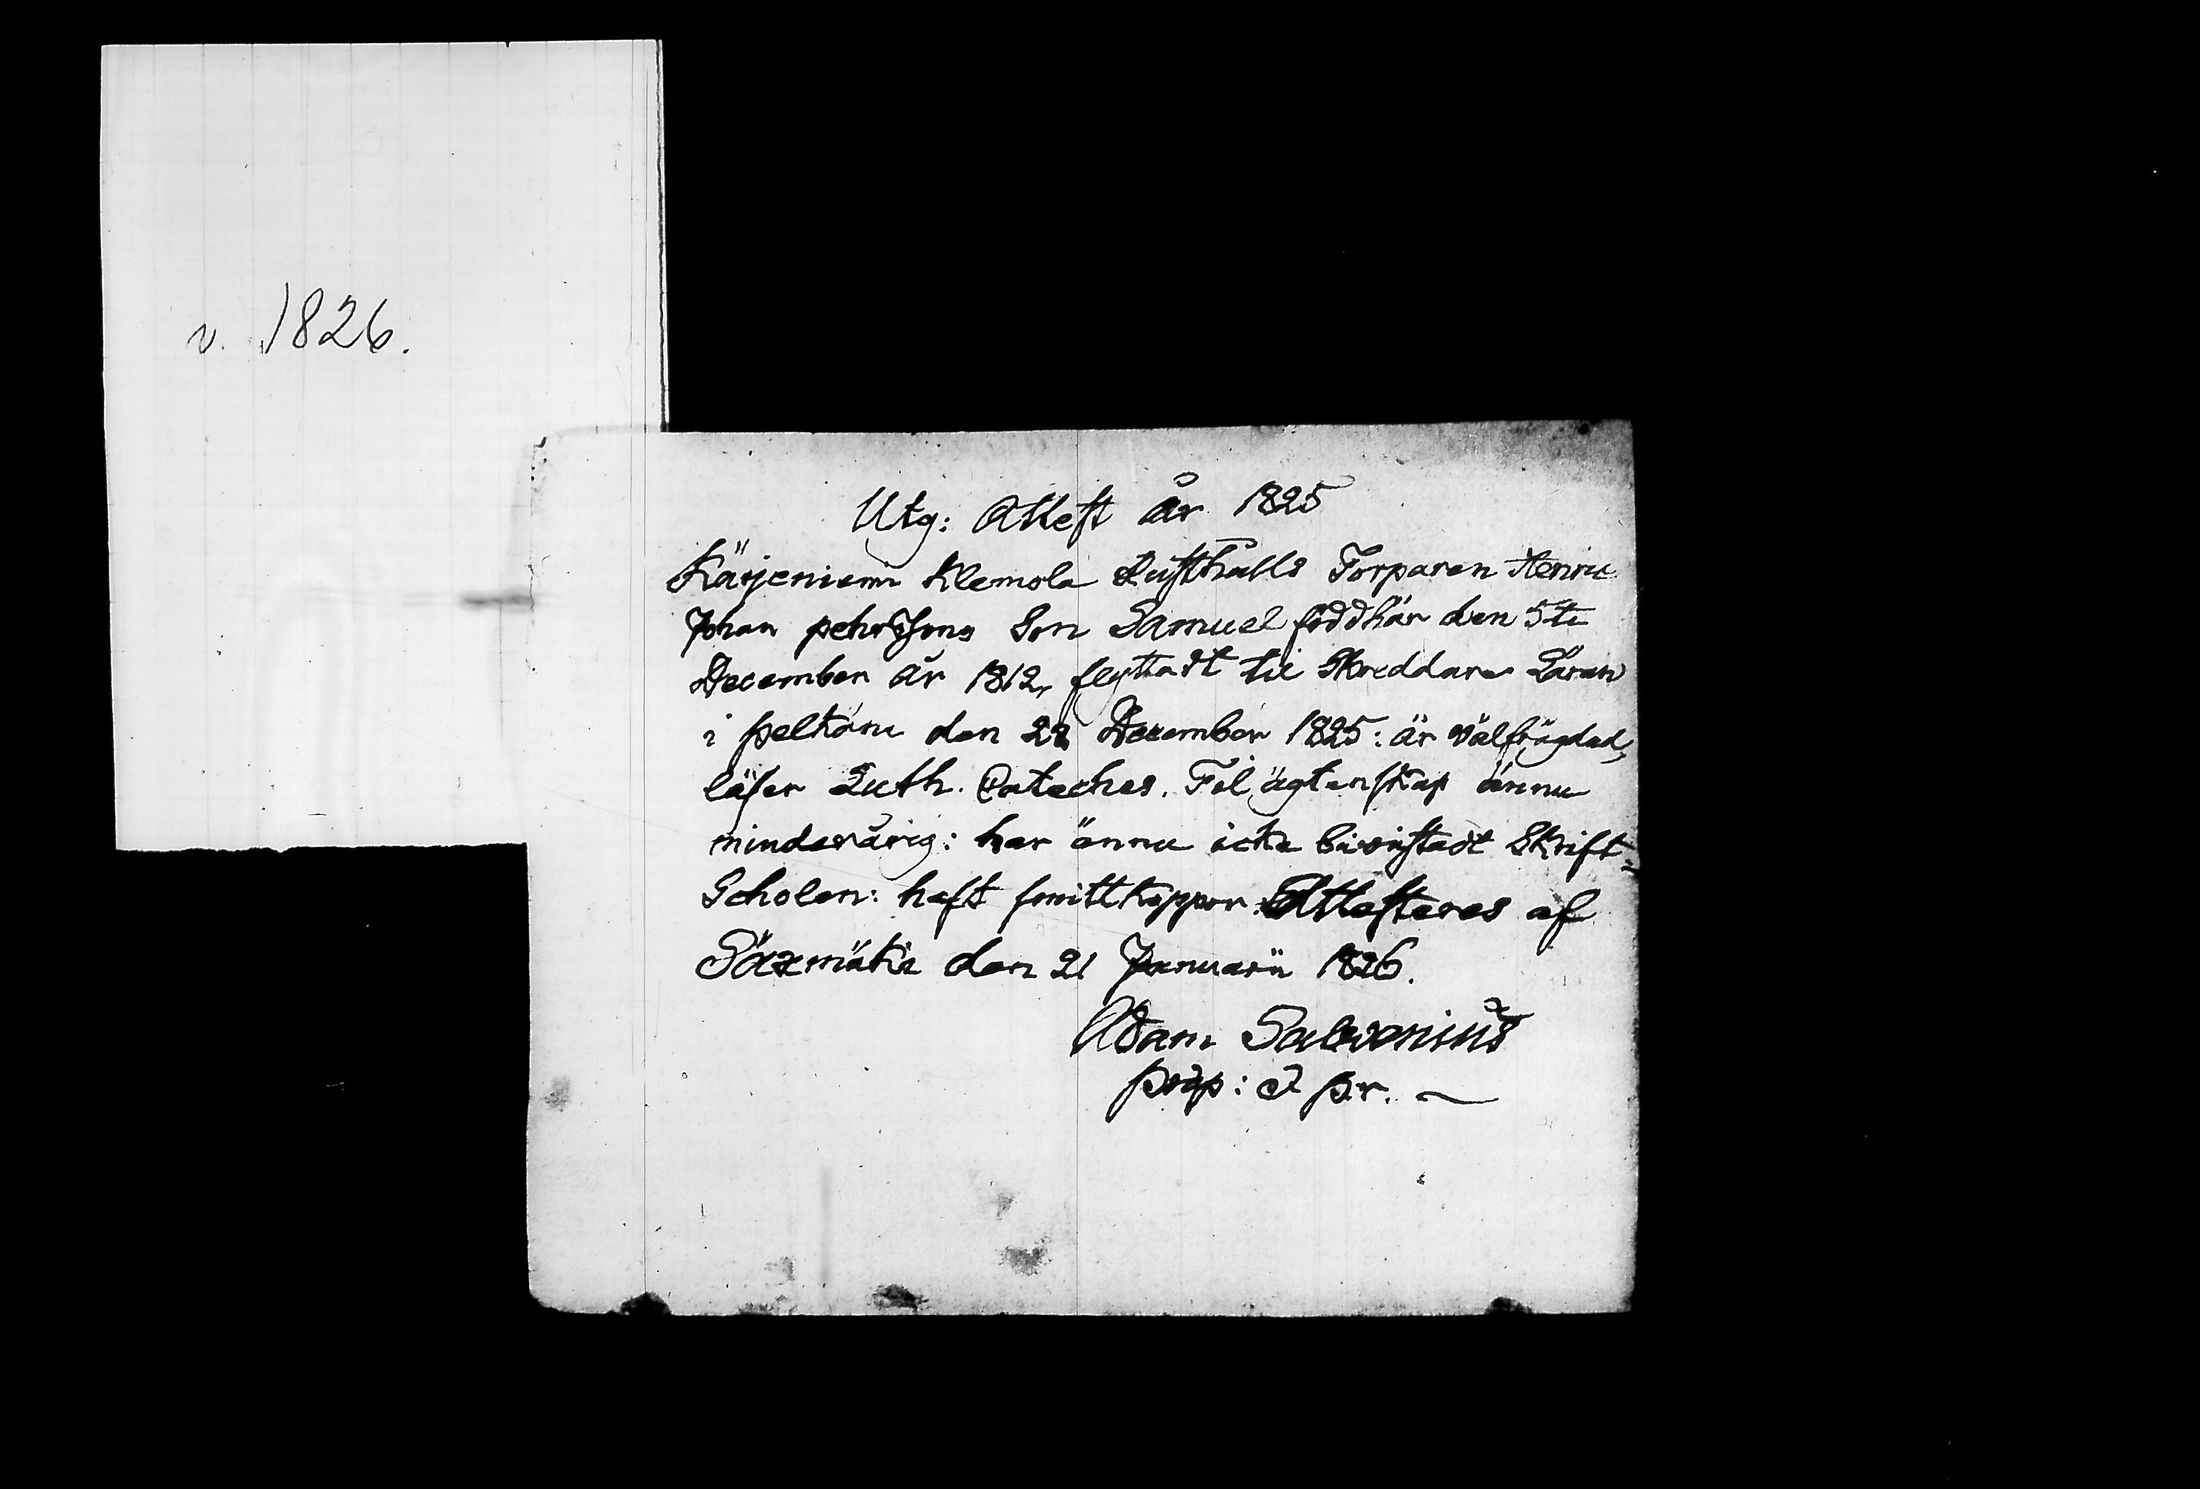 v. 1826.
Utg: Attest år 1825
Kärjeniemi Klemola Rusthålls Torparen Henric
Johan pehrssons Son Samuel född här den 5te
December år 1812, flyttadt til Skreddare Läran
i pelkäne den 28 December 1825: är välfrägdad,
läser Luth. Cateches. Til ägtenskap ännu
minderårig: har ännu icke bivistadt Skrift=
Scholen: haft smittkoppor. Attesteres af
Säxmäki den 21 Januarii 1826.
Adam Salvonius
prap: & pr.